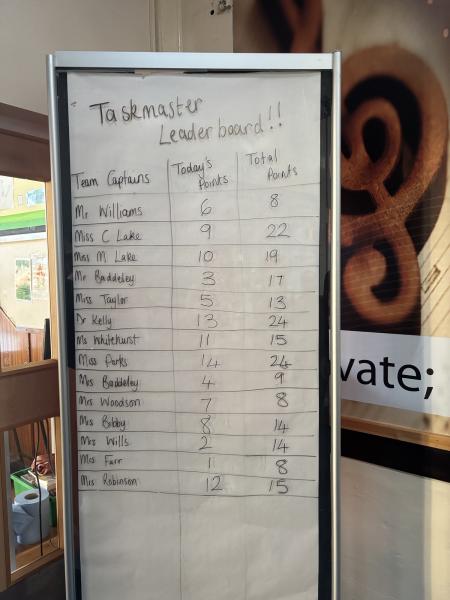 Taskmaster
Leaderboard!!
Team Captains Today's Points Total Points
Mr Williams 6 8
Miss C Lake 9 22
Miss M Lake 10 19
Mr Baddeley 3 17
Miss Taylor 5 13
Dr Kelly 13 24
Ms Whitehurst 11 15
Miss Parks 14 24
Mrs Baddeley 4 9
Mrs Woodson 7 8
Mrs Bibby 8 14
Mrs Wills 2 14
Mrs Farr 1 8
Mrs Robinson 12 15
vate;